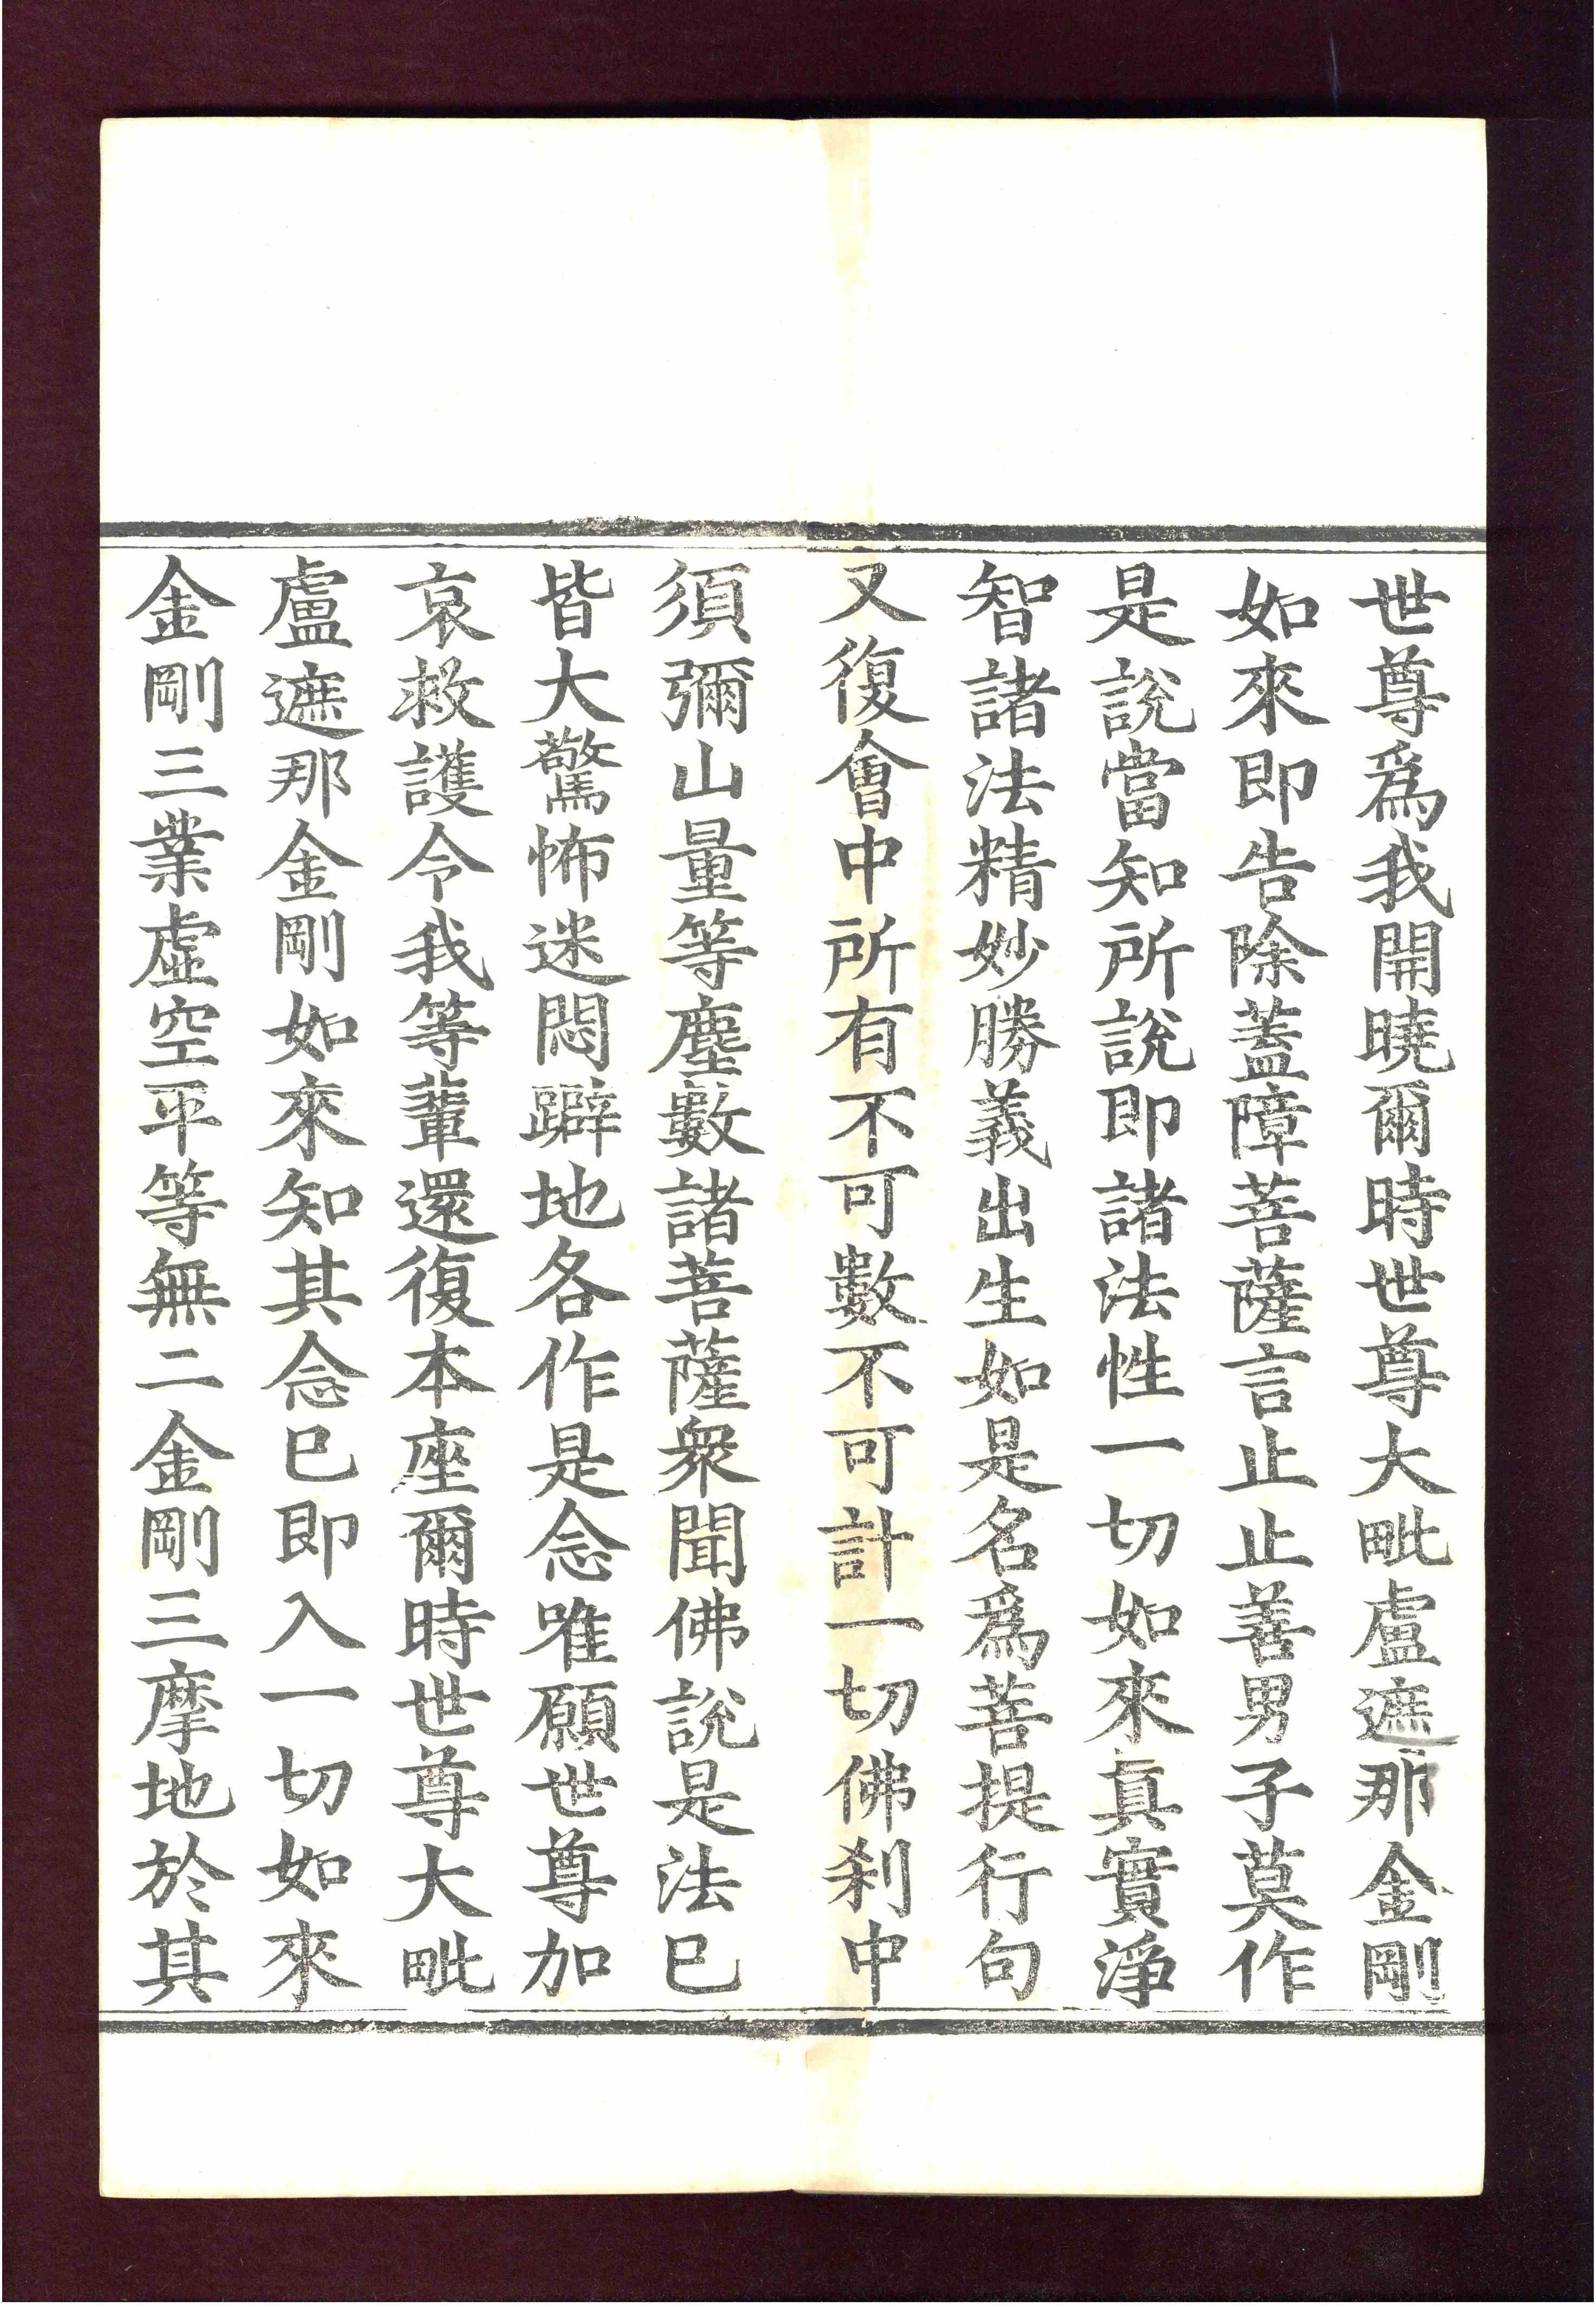 世尊爲我開曉爾時世尊大毗盧遮那金剛
如來即告除蓋障菩薩言止止善男子莫作
是說當知所說即諸法性一切如來真實淨
智諸法精妙勝義出生如是名爲菩提行句
又復會中所有不可數不可計一切佛刹中
須彌山量等塵數諸菩薩衆聞佛說是法已
皆大驚怖迷悶躃地各作是念唯願世尊加
哀救護令我等輩還復本座爾時世尊大毗
盧遮那金剛如來知其念已即入一切如來
金剛三業虛空平等無二金剛三摩地於其